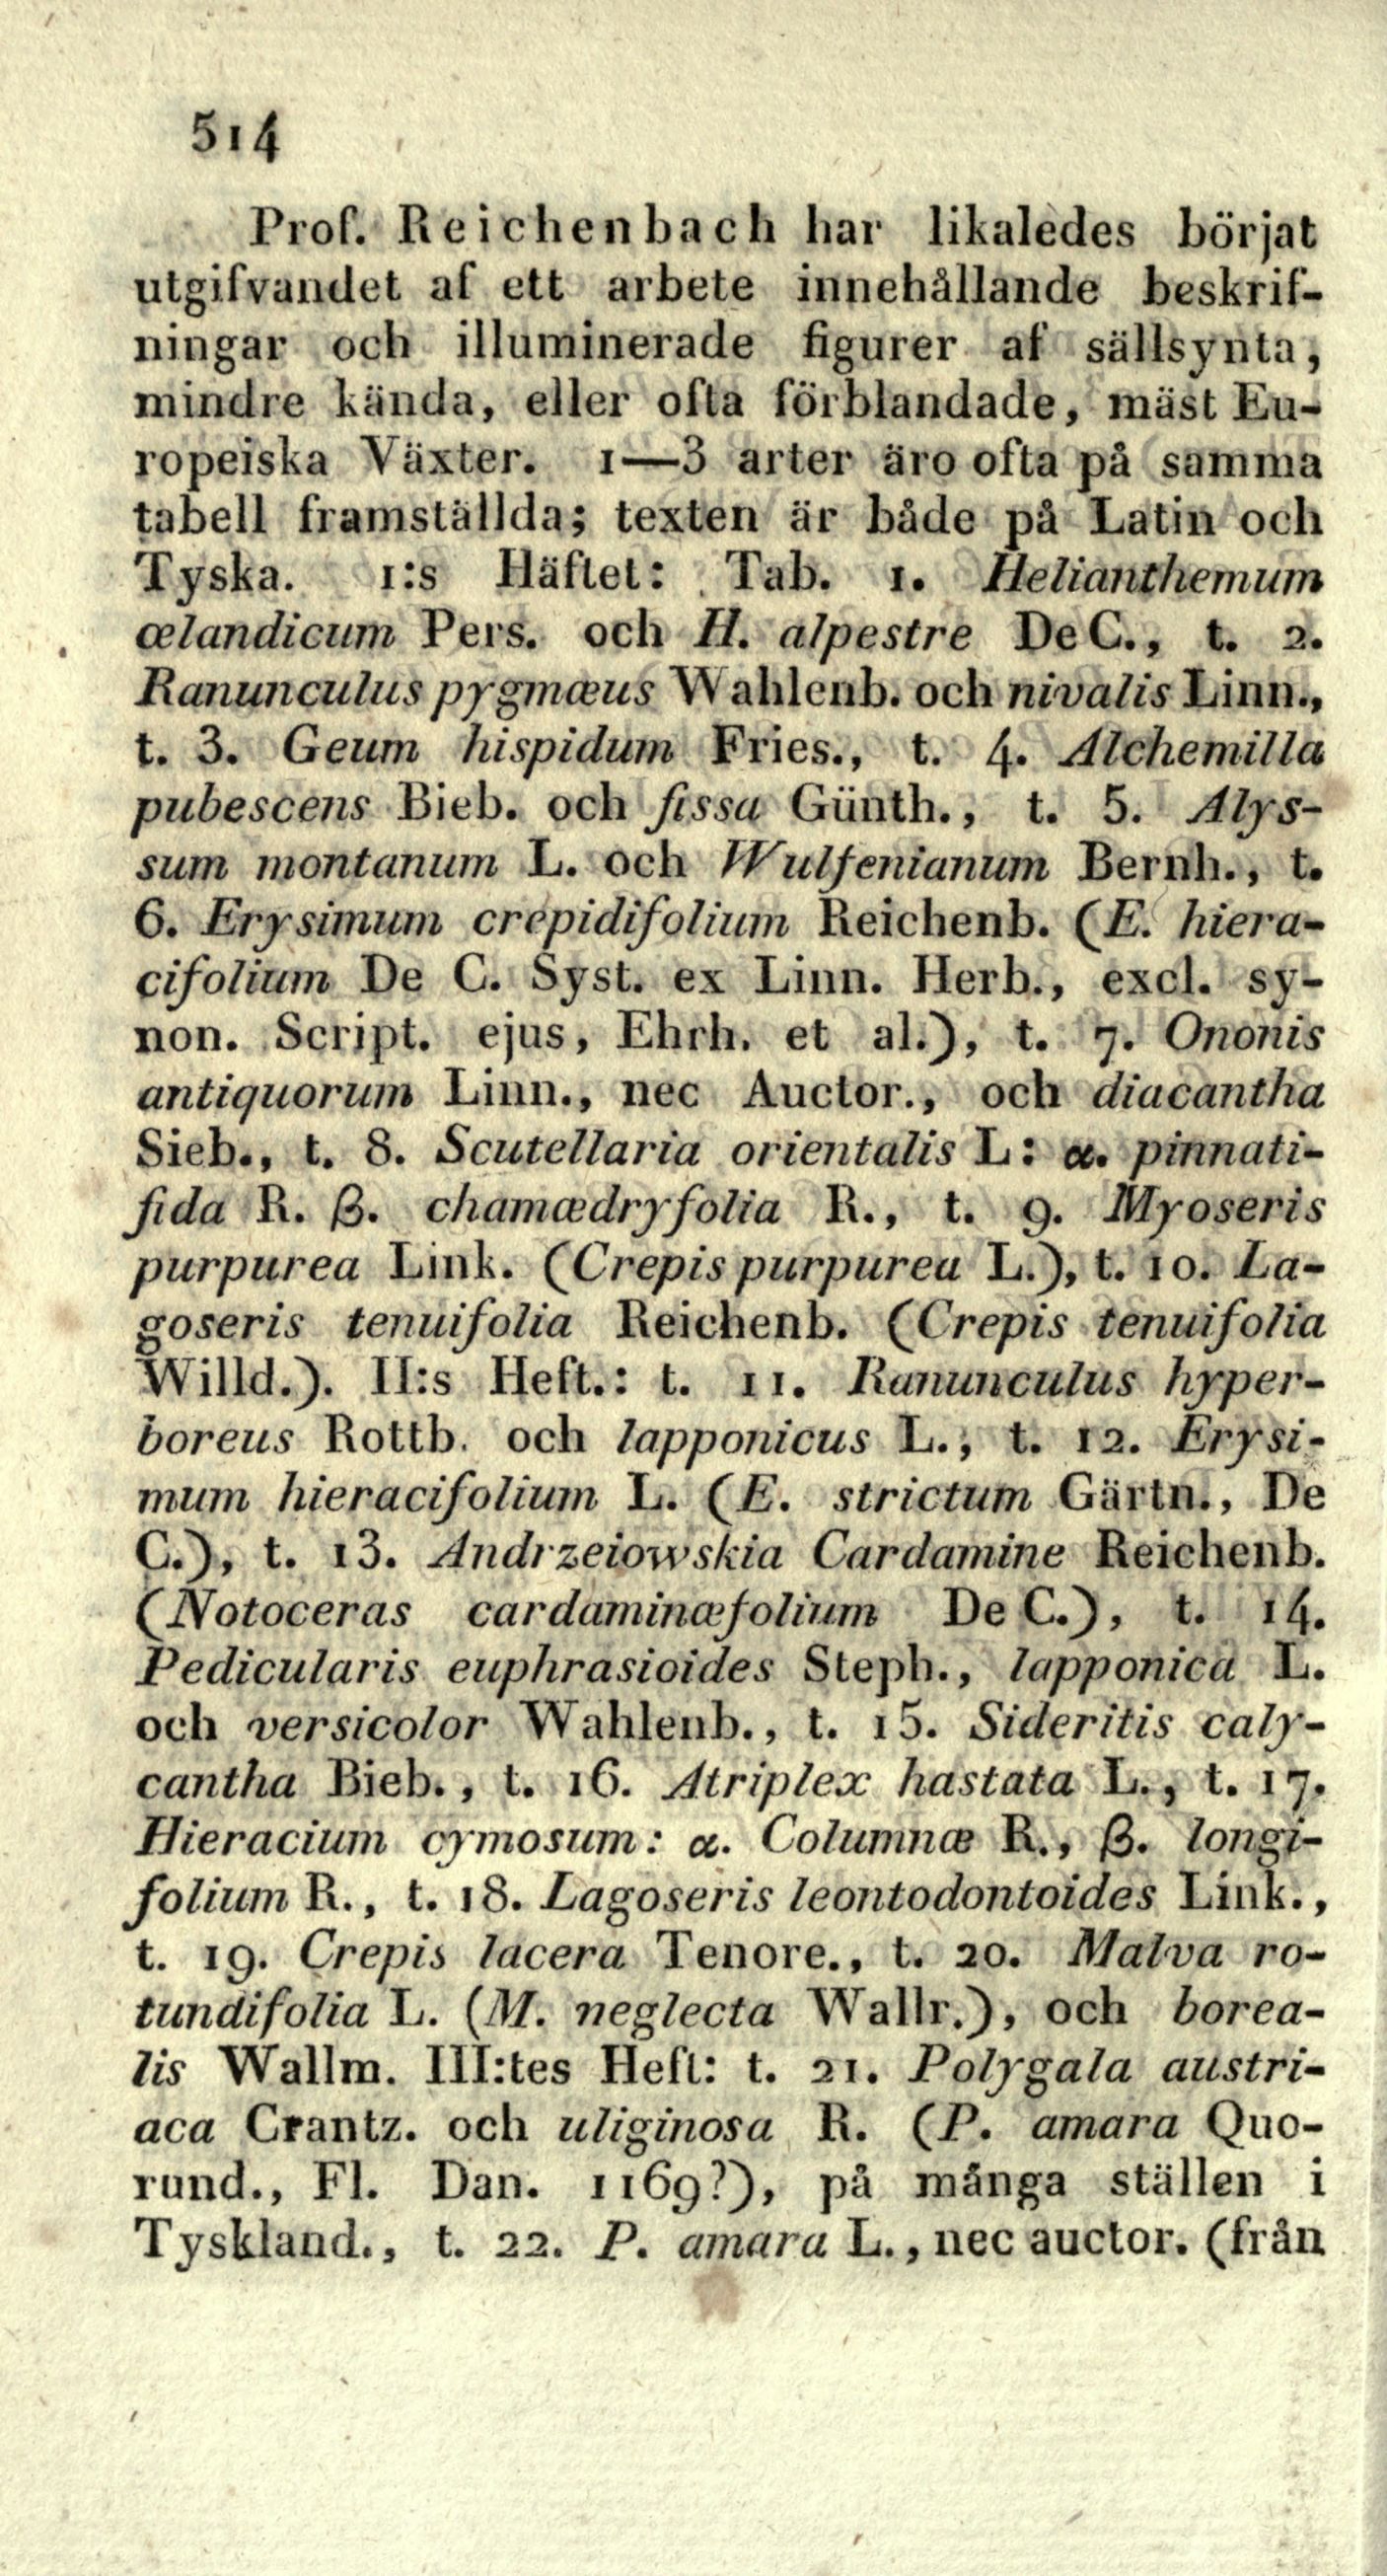 514
Prof. Reichenbach har likaledes börjat
utgifvandet af ett arbete innehållande beskrif-
ningar och illuminerade figurer af sällsynta,
mindre kända, eller ofta förblandade, mäst Eu-
ropeiska Växter. 1—3 arter äro ofta på samma
tabell framställda; texten är både på Latin och
Tyska. 1:s Häftet: Tab. 1. Helianthemum
œlandicum Pers. och H. alpestre De C., t. 2.
Ranunculus pygmæus Wahlenb. och nivalis Linn.,
t. 3. Geum hispidum Fries., t. 4. Alchemilla
pubescens Bieb. och fissa Günth., t. 5. Alys-
sum montanum L. och Wulfenianum Bernh., t.
6. Erysimum crepidifolium Reichenb. (E. hiera-
cifolium De C. Syst. ex Linn. Herb., excl. sy-
non. Script. ejus, Ehrh. et al.), t. 7. Ononis
antiquorum Linn., nec Auctor., och diacantha
Sieb., t. 8. Scutellaria orientalis L: α. pinnati-
fida R. β. chamædryfolia R., t. 9. Myoseris
purpurea Link. (Crepis purpurea L.), t. 10. La-
goseris tenuifolia Reichenb. (Crepis tenuifolia
Willd.). II:s Heft.: t. 11. Ranunculus hyper-
boreus Rottb. och lapponicus L., t. 12. Erysi-
mum hieracifolium L. (E. strictum Gärtn., De
C.), t. 13. Andrzeiowskia Cardamine Reichenb.
(Notoceras cardaminæfolium De C.), t. 14.
Pedicularis euphrasioides Steph., lapponica L.
och versicolor Wahlenb., t. 15. Sideritis caly-
cantha Bieb., t. 16. Atriplex hastata L., t. 17.
Hieracium cymosum: α. Columnæ R., β. longi-
folium R., t. 18. Lagoseris leontodontoides Link.,
t. 19. Crepis lacera Tenore., t. 20. Malva ro-
tundifolia L. (M. neglecta Wallr.), och borea-
lis Wallm. III:tes Heft: t. 21. Polygala austri-
aca Crantz. och uliginosa R. (P. amara Quo-
rund., Fl. Dan. 1169?), på många ställen i
Tyskland., t. 22. P. amara L., nec auctor. (från